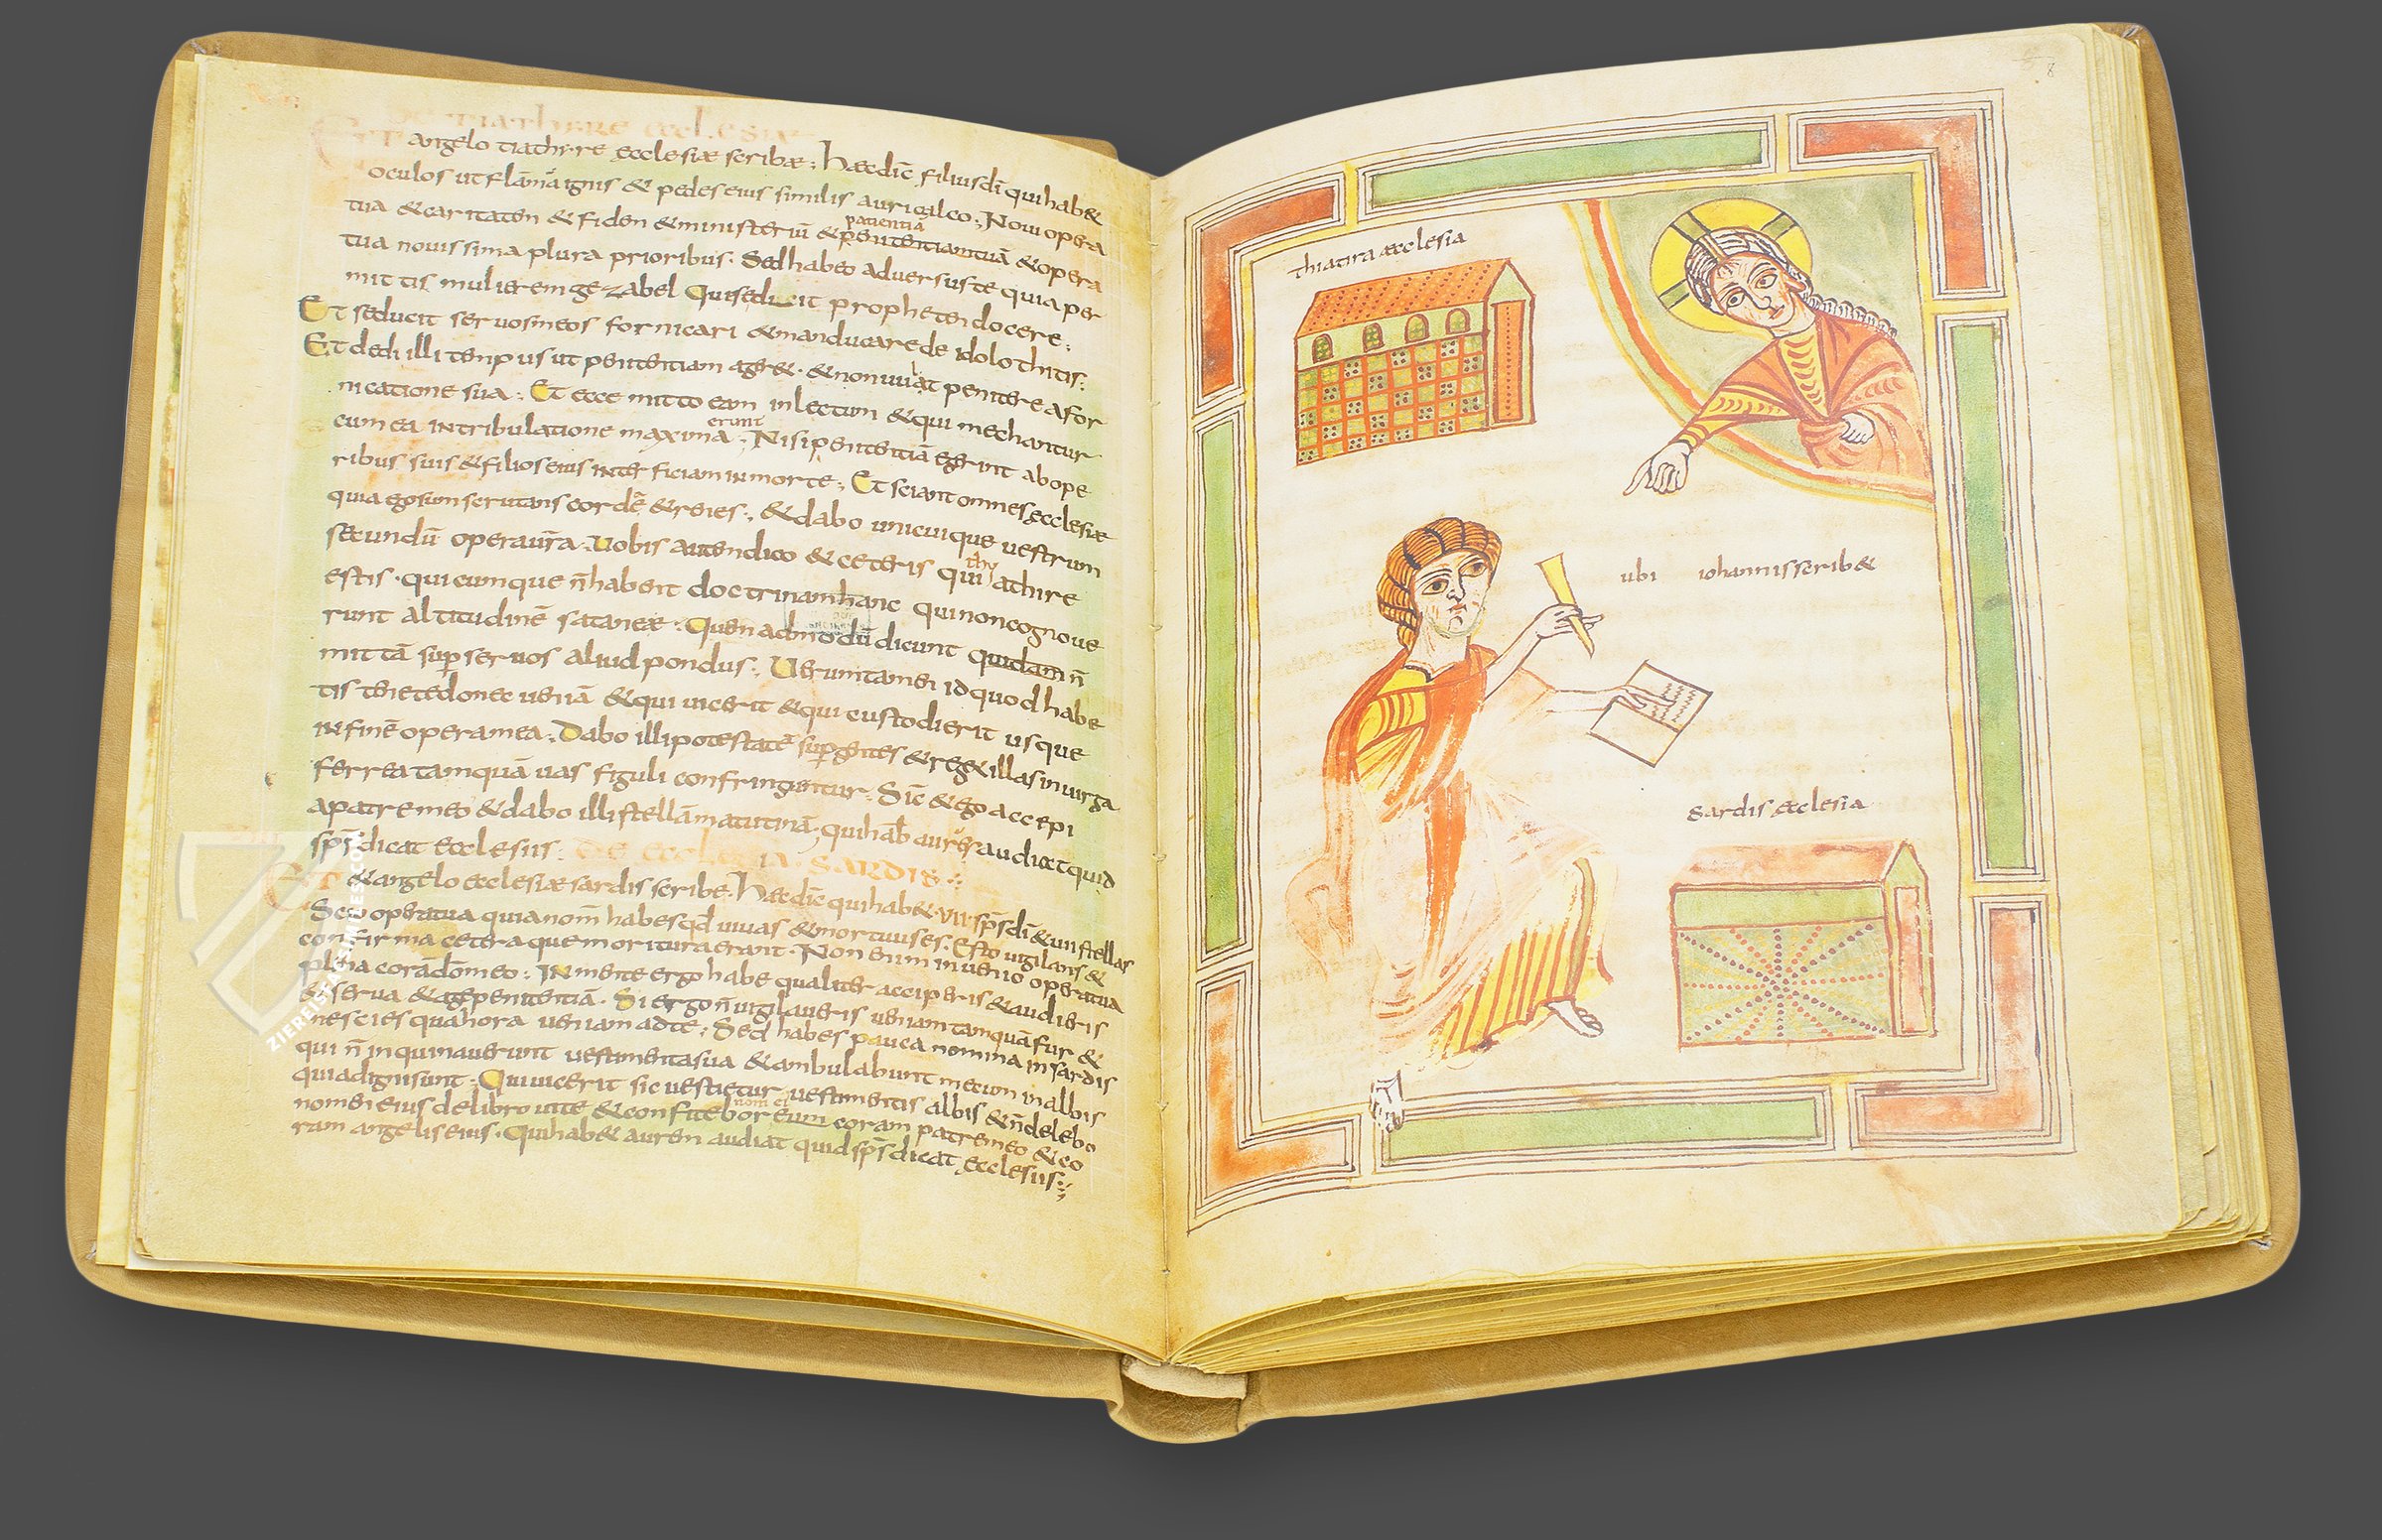 DE TIATHIRE ECCLESIAE
ET angelo tiathyre ecclesiae scribae; haec dic̄ filius dī qui hab&
oculos ut flāma ignis & pedes eius similis auricalco; Noui opera
tua & caritaten & fiden & ministeriū & penitentiam tuā & opera
patientiā
tua nouissima plura prioribus. Sed habeo aduersus te quia per
mittis mulierem gezabel Qui se ducit propheten docere;
Et seducit seruos meos fornicari & manducare de idolothitis;
Et dedi illi tempus ut penitentiam ager&. & non uult penitere a for
nicatione sua; Et ecce mitto eam in lectum & qui mechantur
cum ea in tribulatione maxima; Nisi penitentiā egerint ab ope
erunt
ribus suis & filios eius interficiam in morte; Et sciant omnes ecclesiae
quia ego sum scrutans cordē & renes; & dabo unicuique uestrum
secundū opera ur̄a. Uobis autem dico & ceteris qui athire
thy
estis. quicumque n̄ habent doctrinam hanc qui non cognoue
runt altitudinē satanae; Quem admodū dicunt quidam n̄
mittā sup̄ seruos aliud pondus; Uerumtamen id quod habe
tis tenete donec ueniā & qui uicerit & qui custodierit usque
in finē opera mea; Dabo illi potestatē sup̄ gentes & reg& illas in uirga
ferrea tamquā uas figuli confringuntur; Sic & ego accepi
a patre meo & dabo illi stellā matutinā. qui hab& aurē audiat quid
sp̄s dicat ecclesiis;
DE ECCLESIA SARDIS
ET & angelo ecclesiae sardis scribe. haec dic̄ qui hab& VII sp̄s dī & uii stellas
Scio opera tua quia nom̄ habes qd̄ uiuas & mortuus es. Esto uigilans &
confirma cetera que moritura erant. Non enim inuenio opera tua
plena corā dōmeo; In mente ergo habe qualiter acciperis & audieris
& serua & age penitentiā. Si ergo n̄ uigilaueris ueniam tamquā fur &
nescies qua hora ueniam ad te; Sed habes pauca nomina in sardis
qui n̄ inquinauerunt uestimenta sua & ambulabunt mecum in albis
quia digni sunt; Qui uicerit sic uestietur uestimentis albis & n̄ delebo
nomen eius de libro uite & confitebor eum coram patre meo & co
nom ei
ram angelis eius. Qui hab& aurem audiat quid sp̄s dicat ecclesiis;
ZIEREIS FACSIMILES.COM
8
thiatira ecclesia
ubi iohannis scrib&
sardis ecclesia